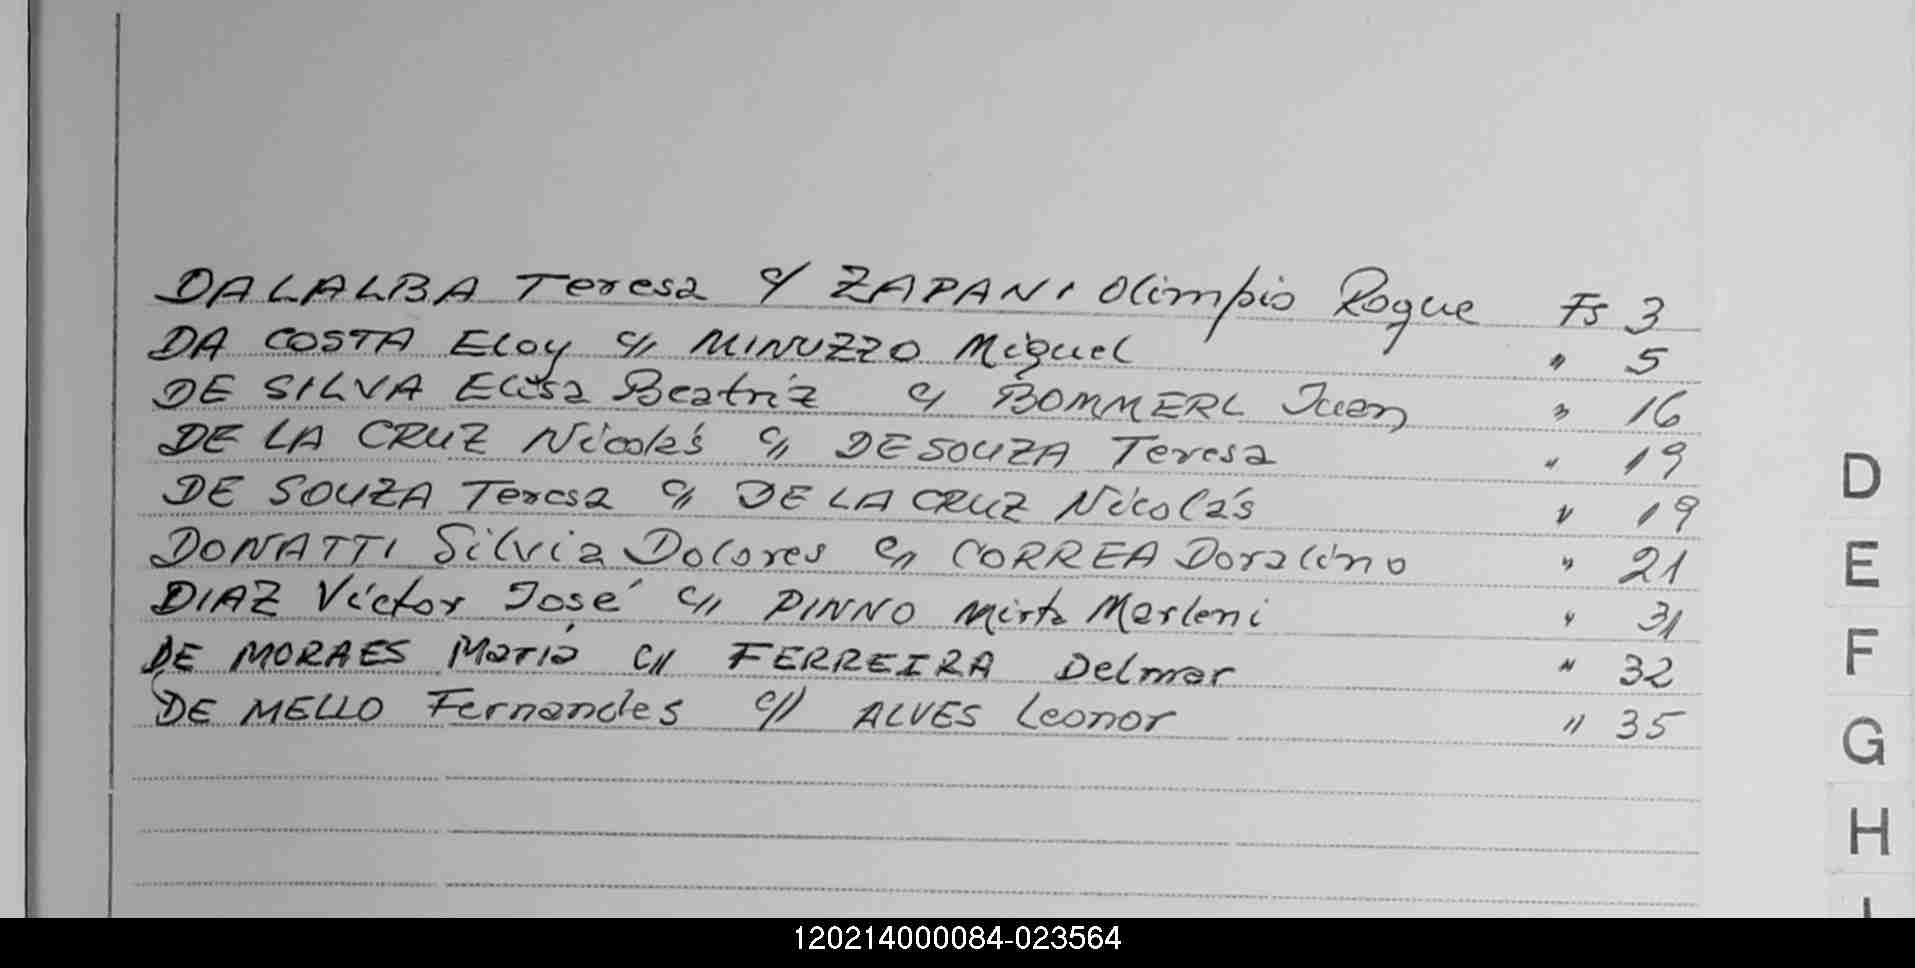 DALALBA Teresa c/ ZAPANI Olimpio Roque Fs 3
DA COSTA Eloy c/ MINUZZO Miguel " 5
DE SILVA Elisa Beatriz c/ BOMMERL Juan " 16
DE LA CRUZ Nicolás c/ DE SOUZA Teresa " 19
DE SOUZA Teresa c/ DE LA CRUZ Nicolás " 19
DONATTI Silvia Dolores c/ CORREA Doralino " 21
DIAZ Víctor José c// PINNO Mirta Marleni " 31
DE MORAES María c// FERREIRA Delmar " 32
DE MELLO Fernandes c// ALVES Leonor " 35
D
E
F
G
H
I
120214000084-023564